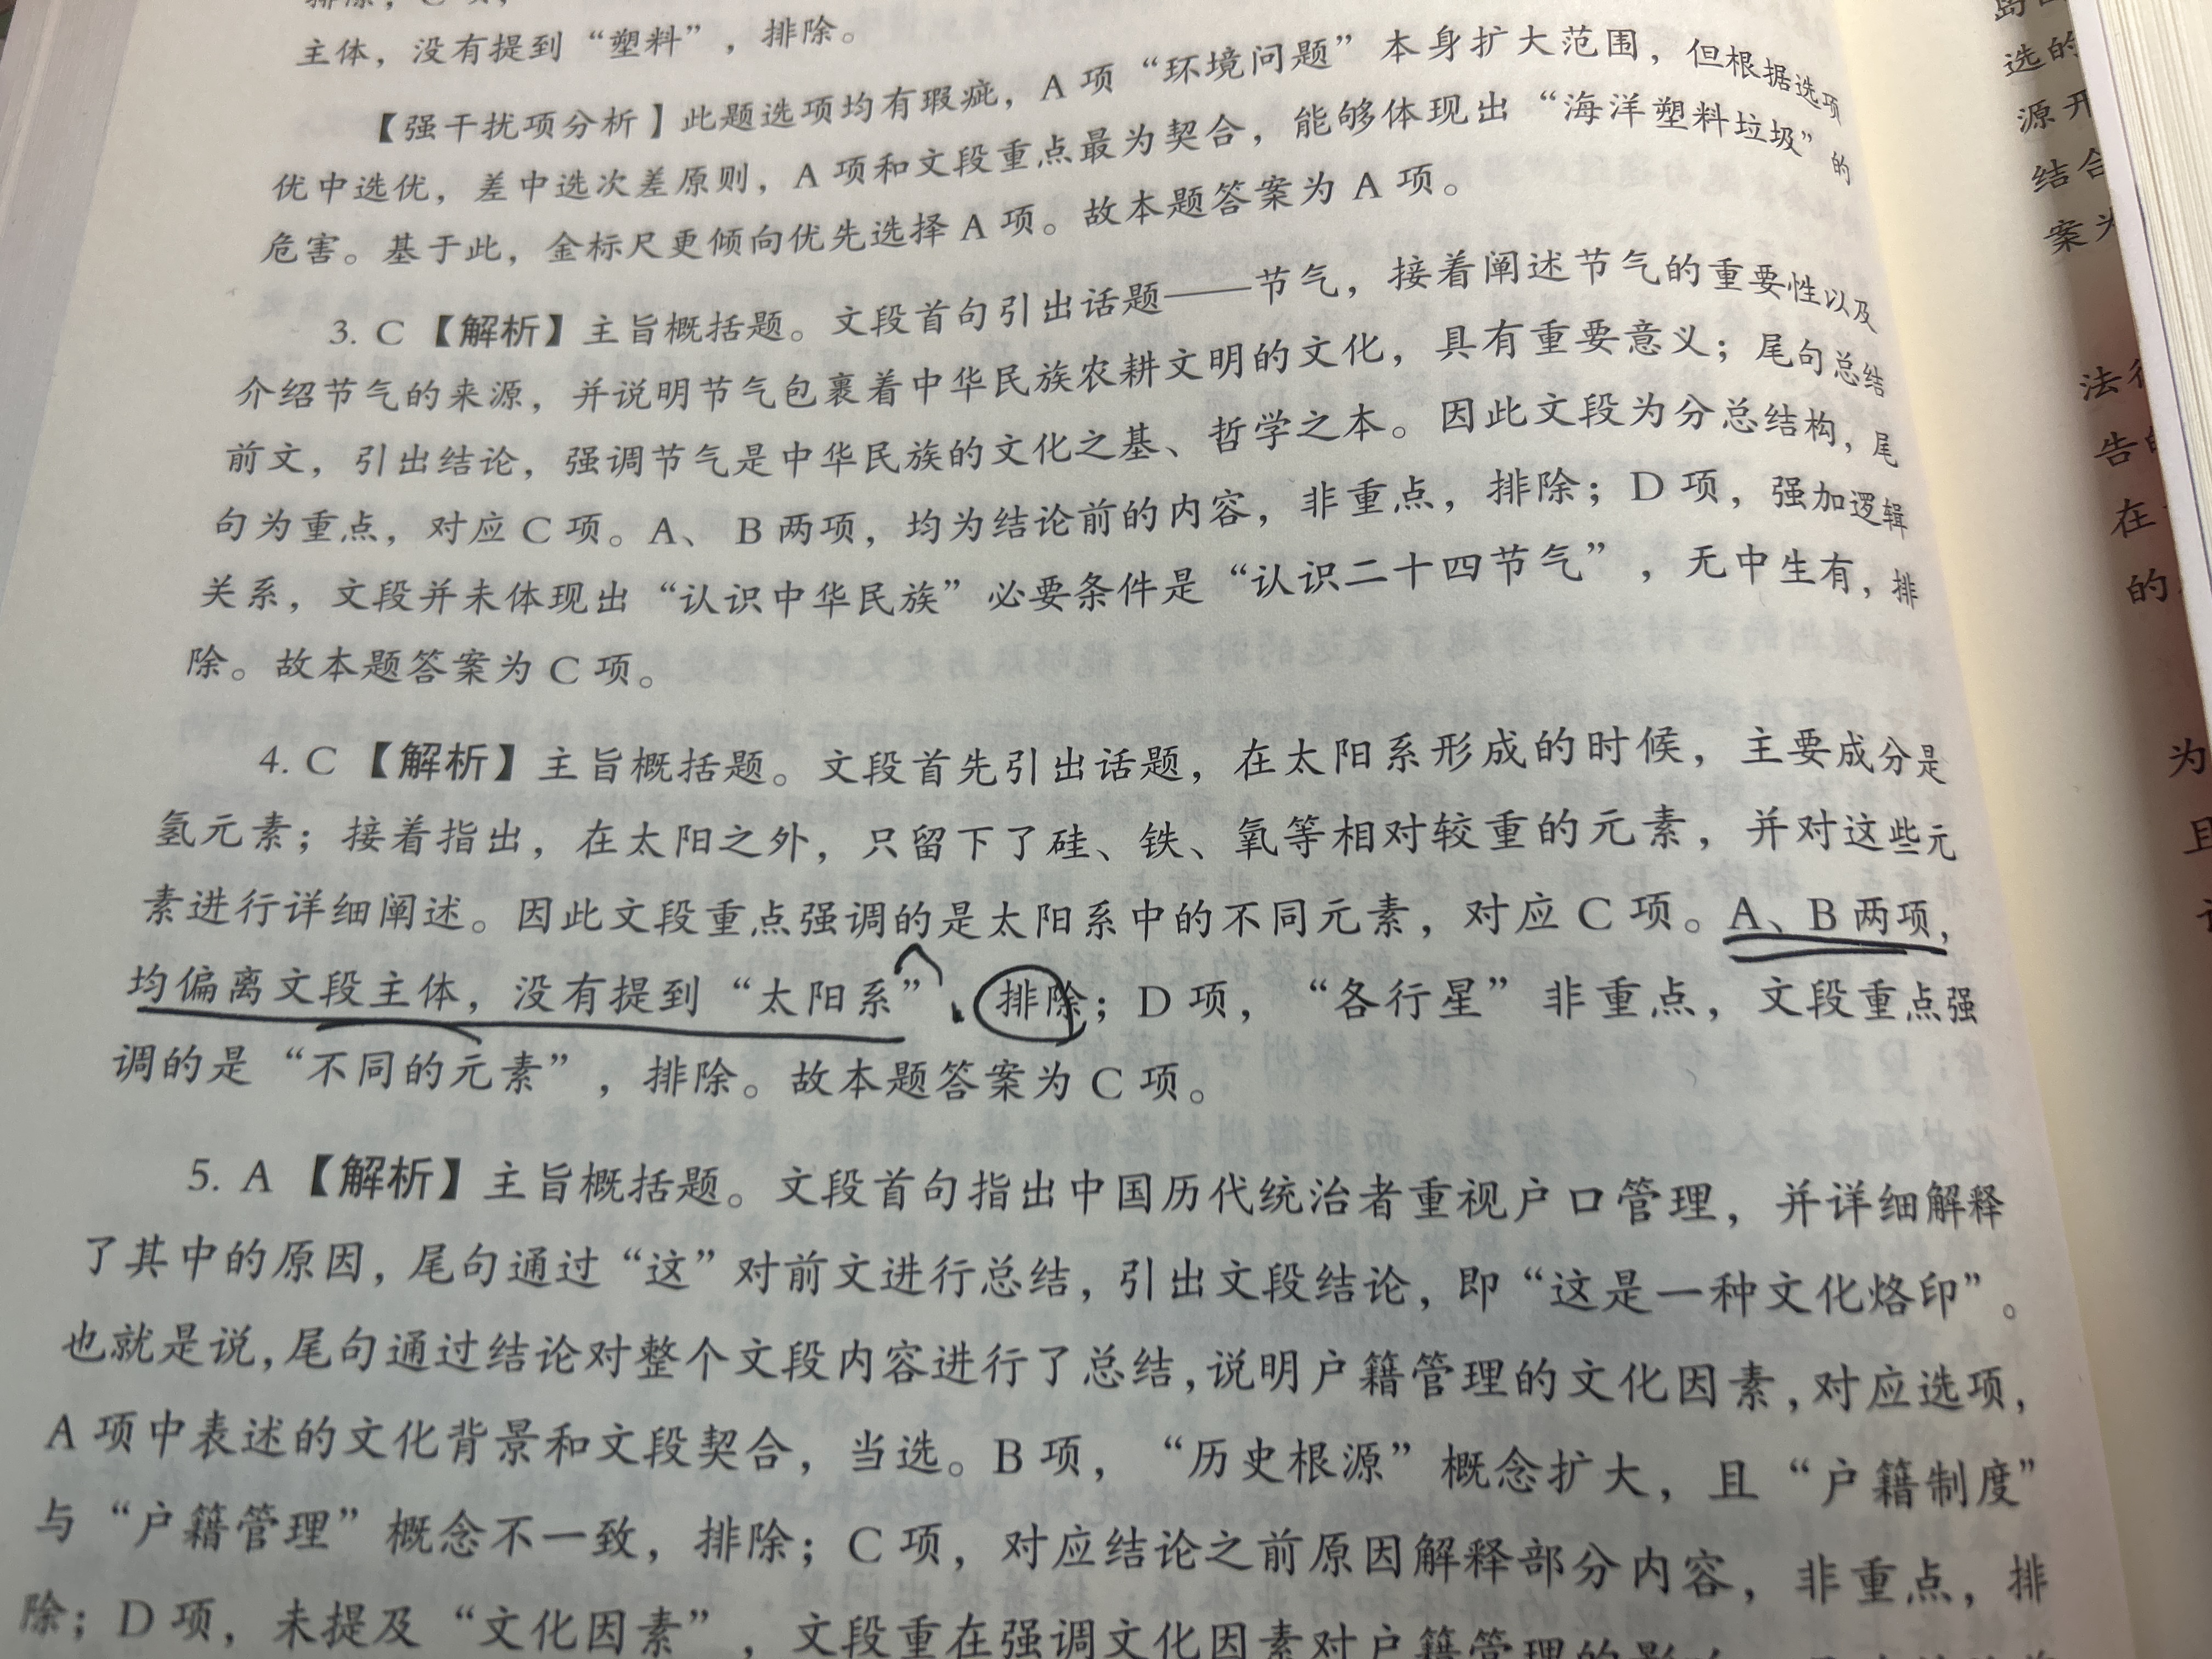 主体，没有提到“塑料”，排除。
【强干扰项分析】此题选项均有瑕疵，A 项“环境问题”本身扩大范围，但根据选项
优中选优，差中选次差原则，A 项和文段重点最为契合，能够体现出“海洋塑料垃圾”的
危害。基于此，金标尺更倾向优先选择 A 项。故本题答案为 A 项。
3. C【解析】主旨概括题。文段首句引出话题——节气，接着阐述节气的重要性以及
介绍节气的来源，并说明节气包裹着中华民族农耕文明的文化，具有重要意义；尾句总结
前文，引出结论，强调节气是中华民族的文化之基、哲学之本。因此文段为分总结构，尾
句为重点，对应 C 项。A、B 两项，均为结论前的内容，非重点，排除；D 项，强加逻辑
关系，文段并未体现出“认识中华民族”必要条件是“认识二十四节气”，无中生有，排
除。故本题答案为 C 项。
4. C【解析】主旨概括题。文段首先引出话题，在太阳系形成的时候，主要成分是
氢元素；接着指出，在太阳之外，只留下了硅、铁、氧等相对较重的元素，并对这些元
素进行详细阐述。因此文段重点强调的是太阳系中的不同元素，对应 C 项。A、B 两项，
均偏离文段主体，没有提到“太阳系”，排除；D 项，“各行星”非重点，文段重点强
调的是“不同的元素”，排除。故本题答案为 C 项。
5. A【解析】主旨概括题。文段首句指出中国历代统治者重视户口管理，并详细解释
了其中的原因，尾句通过“这”对前文进行总结，引出文段结论，即“这是一种文化烙印”。
也就是说，尾句通过结论对整个文段内容进行了总结，说明户籍管理的文化因素，对应选项，
A 项中表述的文化背景和文段契合，当选。B 项，“历史根源”概念扩大，且“户籍制度”
与“户籍管理”概念不一致，排除；C 项，对应结论之前原因解释部分内容，非重点，排
除；D 项，未提及“文化因素”，文段重在强调文化因素对户籍管理的影响
选的
源开
结合
案为
告
在
的
为
且